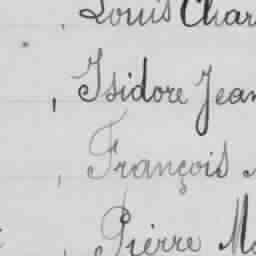 Louis Char
, Isidore Jean
, François
, Pierre M